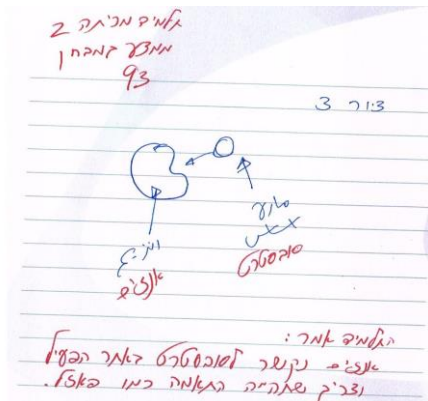 תלמיד מכיתה 2
ממוצע במבחן
93
ציור 3
סובסטרט
אנזים
התלמיד אמר:
אנזים נקשר לסובסטרט באתר הפעיל
וצריך שתהייה התאמה כמו פאזל.